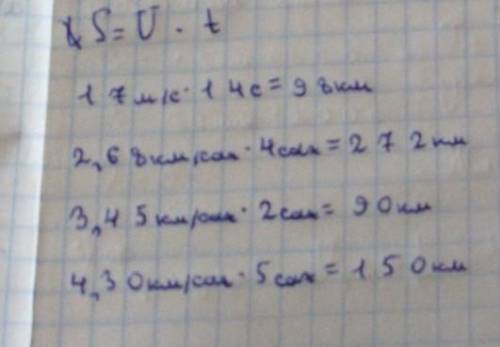 S = U · t
1 7 м/с · 1 4с = 9 8км
2, 6 8 км/сағ · 4сағ = 2 7 2 км
3, 4 5 км/сағ · 2сағ = 9 0 км
4, 3 0 км/сағ · 5сағ = 1 5 0 км